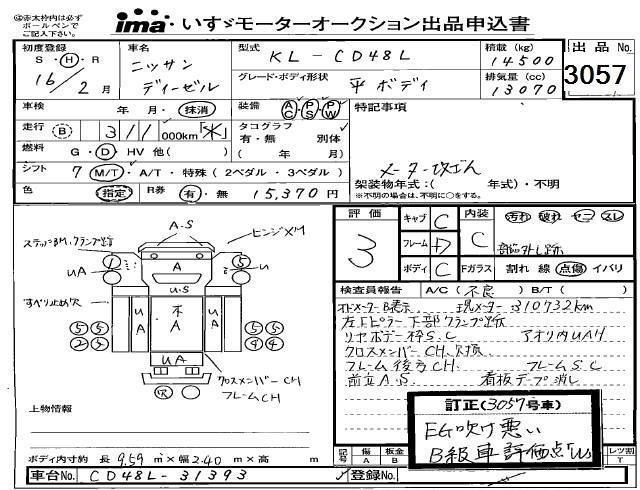 太枠内は必ず
ボールペンで
ご記入下さい。
ima・いすゞモーターオークション出品申込書
初度登録
S・H・R
16年 2月
車名
ニッサン
ディーゼル
型式
KL-CD48L
グレード・ボディ形状
平ボディ
積載 (kg)
14500
排気量 (cc)
13070
出品 No.
3057
車検 年 月・抹消
装備 AC PS PW
特記事項
走行 B 311,000km「米」
タコグラフ
有・無 別体
( 年 月)
燃料 G・D・HV 他( )
シフト 7 M/T・A/T・特殊 (2ペダル・3ペダル)
メーター改ざん
架装物年式:( 年式)・不明
※不明の場合は、不明に○をする。
色 指定 R券 有・無 15,370円
評価
3
キャブ C
フレーム D
ボディ C
内装
C
汚れ 破れ ヤニ スレ
Fガラス 割れ 線 点傷 イバリ
検査員報告 A/C (不良) B/T ( )
オドメーターB表示 現メーター310732km
左Fピラー下部クランプ跡
リヤボデー枠S.C アオリ内UAH
クロスメンバーCH、欠損
フレーム後方CH フレームS.C
前立A.S 看板テープ消し
A.S
ステップBM、クランプ跡
ヒンジXM
UA
A
U
U.S
すべり止め穴
UA
不A
UA
UA
クロスメンバーCH
フレームCH
上物情報
ボディ内寸約 長 9.59 m×幅 2.40 m×高 m
記号
傷
A
板金
B
レツ割
T
車台No. CD48L-31393
登録No.
訂正(3057号車)
EG吹け悪い
B級車評価点